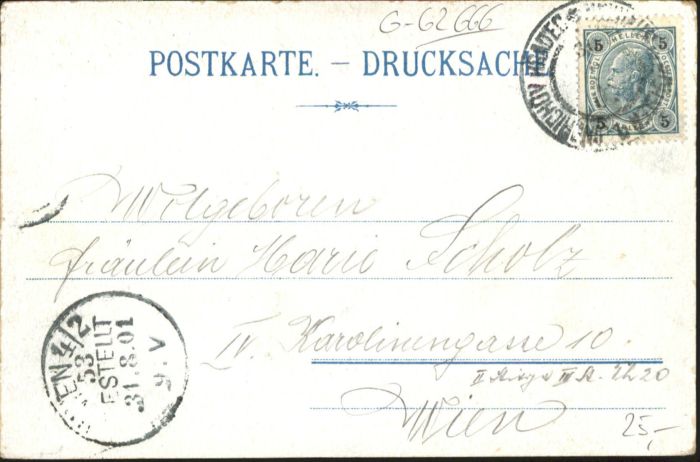 G-62666
POSTKARTE. — DRUCKSACHE
HELLER
5 5
5 5
JINDŘICHŮV HRADEC
Wolgeboren
Fräulein Marie Scholz
IV. Karolinengasse 10.
II Stiege III St. T. 20
Wien
25,-
WIEN 4/2
53
BESTELLT
31.8.01
9.V